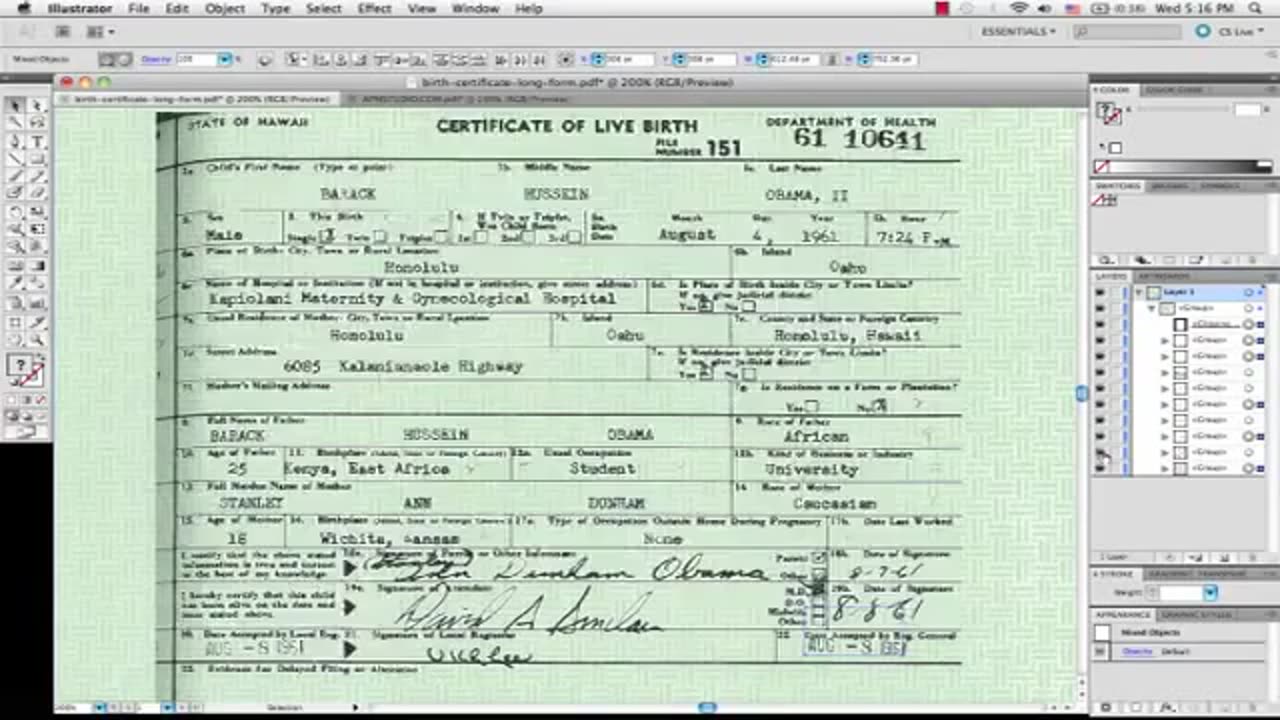 Illustrator File Edit Object Type Select Effect View Window Help Wed 5:16 PM
ESSENTIALS CS Live
Mixed Objects Opacity
birth-certificate-long-form.pdf* @ 200% (RGB/Preview)
birth-certificate-long-form.pdf* @ 200% (RGB/Preview)
COLOR
STATE OF HAWAII CERTIFICATE OF LIVE BIRTH DEPARTMENT OF HEALTH
FILE NUMBER 151 61 10641
Child's First Name (Type or print) Middle Name Last Name
BARACK HUSSEIN OBAMA, II
Sex This Birth If Twin or Triplet, Was Child Born Birth Date Month Day Year Hour
Male Single Twin Triplet 1st 2nd 3rd August 4, 1961 7:24 P.M.
Place of Birth: City, Town or Rural Location Island
Honolulu Oahu
Name of Hospital or Institution (If not in hospital or institution, give street address) Is Place of Birth Inside City or Town Limits?
If no, give judicial district
Kapiolani Maternity & Gynecological Hospital Yes No
Usual Residence of Mother: City, Town or Rural Location Island County and State or Foreign Country
Honolulu Oahu Honolulu, Hawaii
Street Address Is Residence Inside City or Town Limits?
If no, give judicial district
6085 Kalanianaole Highway Yes No
Mother's Mailing Address Is Residence on a Farm or Plantation?
Yes No
Full Name of Father Race of Father
BARACK HUSSEIN OBAMA African
Age of Father Birthplace Usual Occupation Kind of Business or Industry
25 Kenya, East Africa Student University
Full Maiden Name of Mother Race of Mother
STANLEY ANN DUNHAM Caucasian
Age of Mother Birthplace Type of Occupation Outside Home During Pregnancy Date Last Worked
18 Wichita, Kansas None
I certify that the above stated information is true and correct to the best of my knowledge. Signature of Parent or Other Informant Parent Other Date of Signature
(Stanley) Ann Dunham Obama 8-7-61
I hereby certify that this child was born alive on the date and hour stated above. Signature of Attendant M.D. D.O. Midwife Other Date of Signature
David A Sinclair 8-8-61
Date Accepted by Local Reg. Signature of Local Registrar Date Accepted by Reg. General
AUG -8 1961 AUG -8 1961
Evidence for Delayed Filing or Alteration
LAYERS
Layer 1
<Group>
<Group>
<Group>
<Group>
<Group>
<Group>
<Group>
<Group>
<Group>
<Group>
1 Layer
STROKE
APPEARANCE GRAPHIC STYLES
Mixed Objects
Opacity: Default
200% Selection